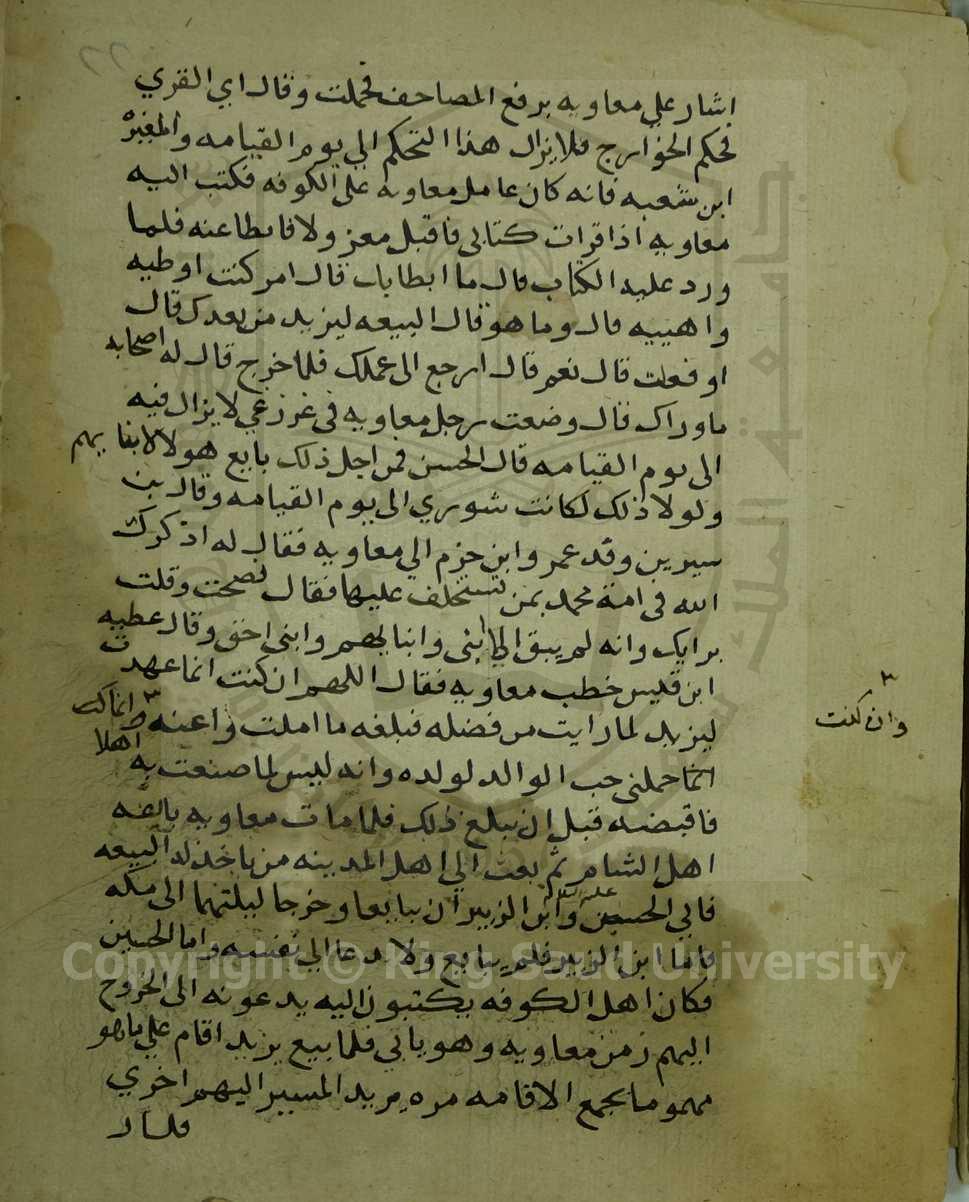 اشار على معاويه برفع المصاحف فحملت وقال اي القري
فحكم الخوارج فلا يزال هذا التحكم الي يوم القيامه والمغيرة
ابن شعبه فانه كان عامل معاويه على الكوفه فكتب اليه
معاويه اذا قرات كتابي فاقبل معزولا فابطا عنه فلما
ورد عليه الكتاب قال ما ابطا بك قال امر كنت اوطيه
واهييه قال وما هو قال البيعه ليزيد من بعدك قال
او فعلت قال نعم قال ارجع الى عملك فلما خرج قال له اصحابه
ما وراك قال وضعت رجل معاويه في غرز غي لا يزال فيه
الى يوم القيامه قال الحسن فمن اجل ذلك بايع هولا لابنايهم
ولولا ذلك لكانت شوري الى يوم القيامه وقال بن
سيرين وفد عمر وابن حزم الي معاويه فقال له اذكرك
الله في امة محمد بمن تستخلف عليها فقال نصحت وقلت
برايك وانه لم يبق الا ابني وابناؤهم وابني احق وقال عطيه
ابن قليس خطب معاويه فقال اللهم ان كنت انما عهدت
ليزيد لما رايت من فضله فبلغه ما املت واعنه ٣ انما كنت
انما حملني حب الوالد لولده وانه ليس لما صنعت به اهلا
فاقبضه قبل ان يبلغ ذلك فلما مات معاويه بايعه
اهل الشام ثم بعث الي اهل المدينه من ياخذ له البيعه
فابي الحسين عليه السلام وابن الزبير ان يبايعا وخرجا ليلتهما الى مكه
فاما ابن الزبير فلم يبايع ولا دعا الي نفسه واما الحسين
فكان اهل الكوفه يكتبون اليه يدعونه الى الخروج
اليهم زمن معاويه وهو يابي فلما بيع يزيد اقام علي ما هو
مهموما يجمع الاقامه مره ويريد المسير اليهم اخري
٣ وان كنت
Copyright © King Saud University
جامعة الملك سعود